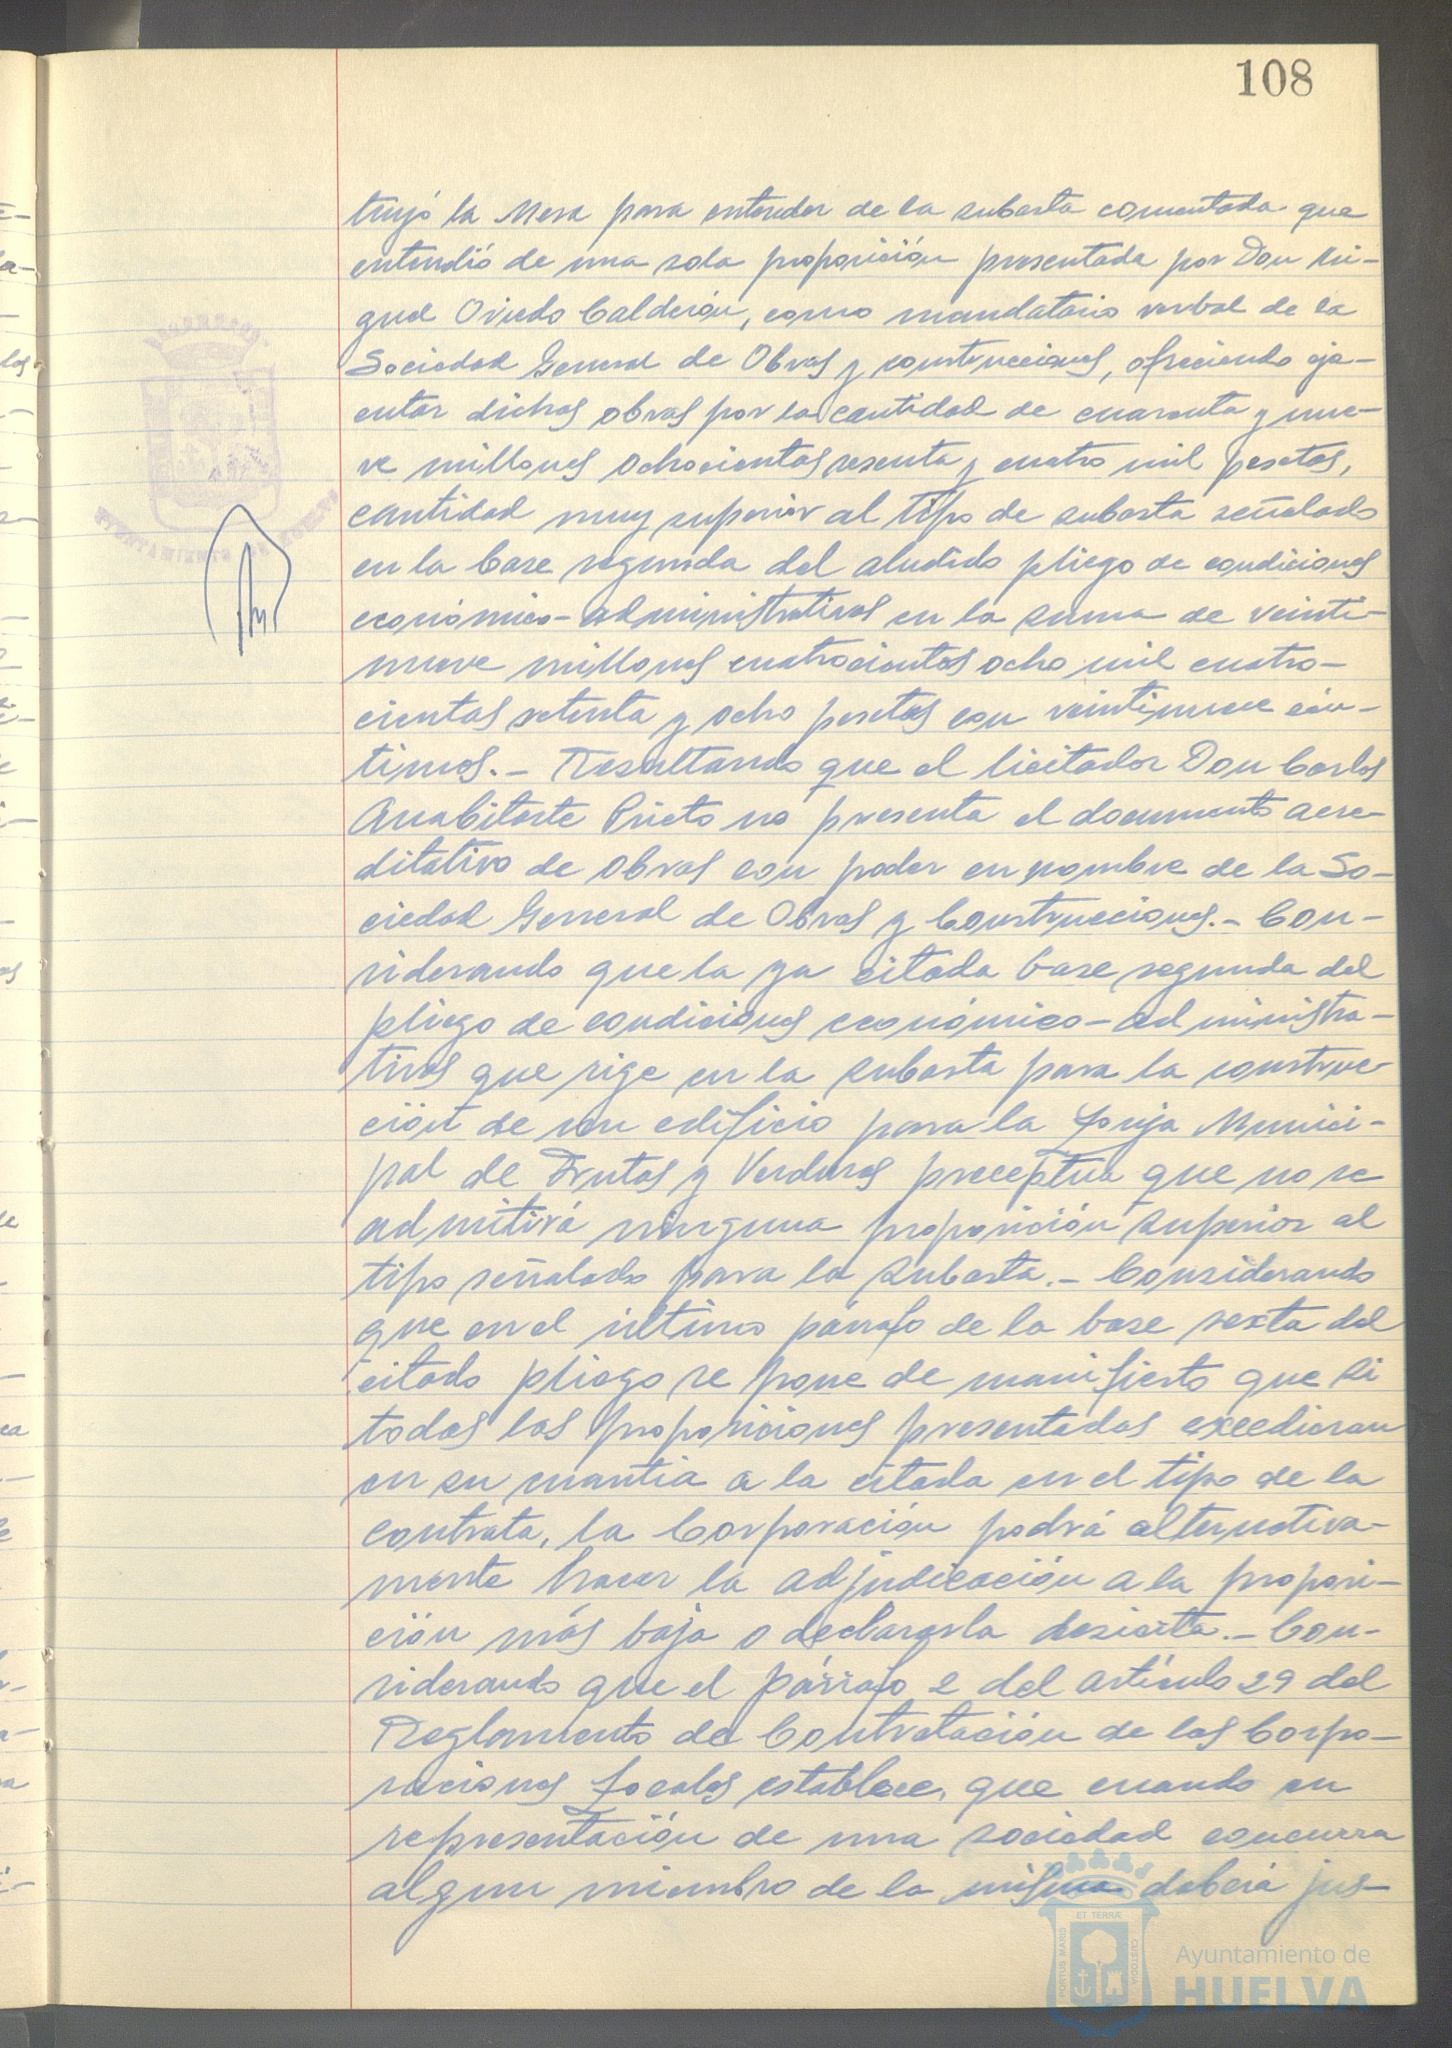 108
tuyó la Mesa para entender de la subasta comentada que
entendió de una sola proposición presentada por Don Mi-
guel Oviedo Calderón, como mandatario verbal de la
Sociedad General de Obras y construcciones, ofreciendo eje-
cutar dichas obras por la cantidad de cuarenta y nue-
ve millones ochocientas sesenta y cuatro mil pesetas,
cantidad muy superior al tipo de subasta señalado
en la base segunda del aludido pliego de condiciones
económico-administrativas en la suma de veinti-
nueve millones cuatrocientas ocho mil cuatro-
cientas setenta y ocho pesetas con veintinueve cén-
timos.- Resultando que el licitador Don Carlos
Anabitarte Prieto no presenta el documento acre-
ditativo de obras con poder en nombre de la So-
ciedad General de Obras y Construcciones.- Con-
siderando que la ya citada base segunda del
pliego de condiciones económico-administra-
tivas que rige en la subasta para la construc-
ción de un edificio para la Lonja Munici-
pal de Frutas y Verduras preceptúa que no se
admitirá ninguna proposición superior al
tipo señalado para la subasta.- Considerando
que en el último párrafo de la base sexta del
citado pliego se pone de manifiesto que si
todas las proposiciones presentadas excedieran
en su cuantía a la citada en el tipo de la
contrata, la Corporación podrá alternativa-
mente hacer la adjudicación a la proposi-
ción más baja o declararla desierta.- Con-
siderando que el párrafo 2 del artículo 29 del
Reglamento de Contratación de las Corpo-
raciones Locales establece, que cuando en
representación de una sociedad concurra
algun miembro de la misma deberá jus-
AYUNTAMIENTO DE HUELVA
PORTUS MARIS ET TERRÆ CUSTODIA
Ayuntamiento de
HUELVA